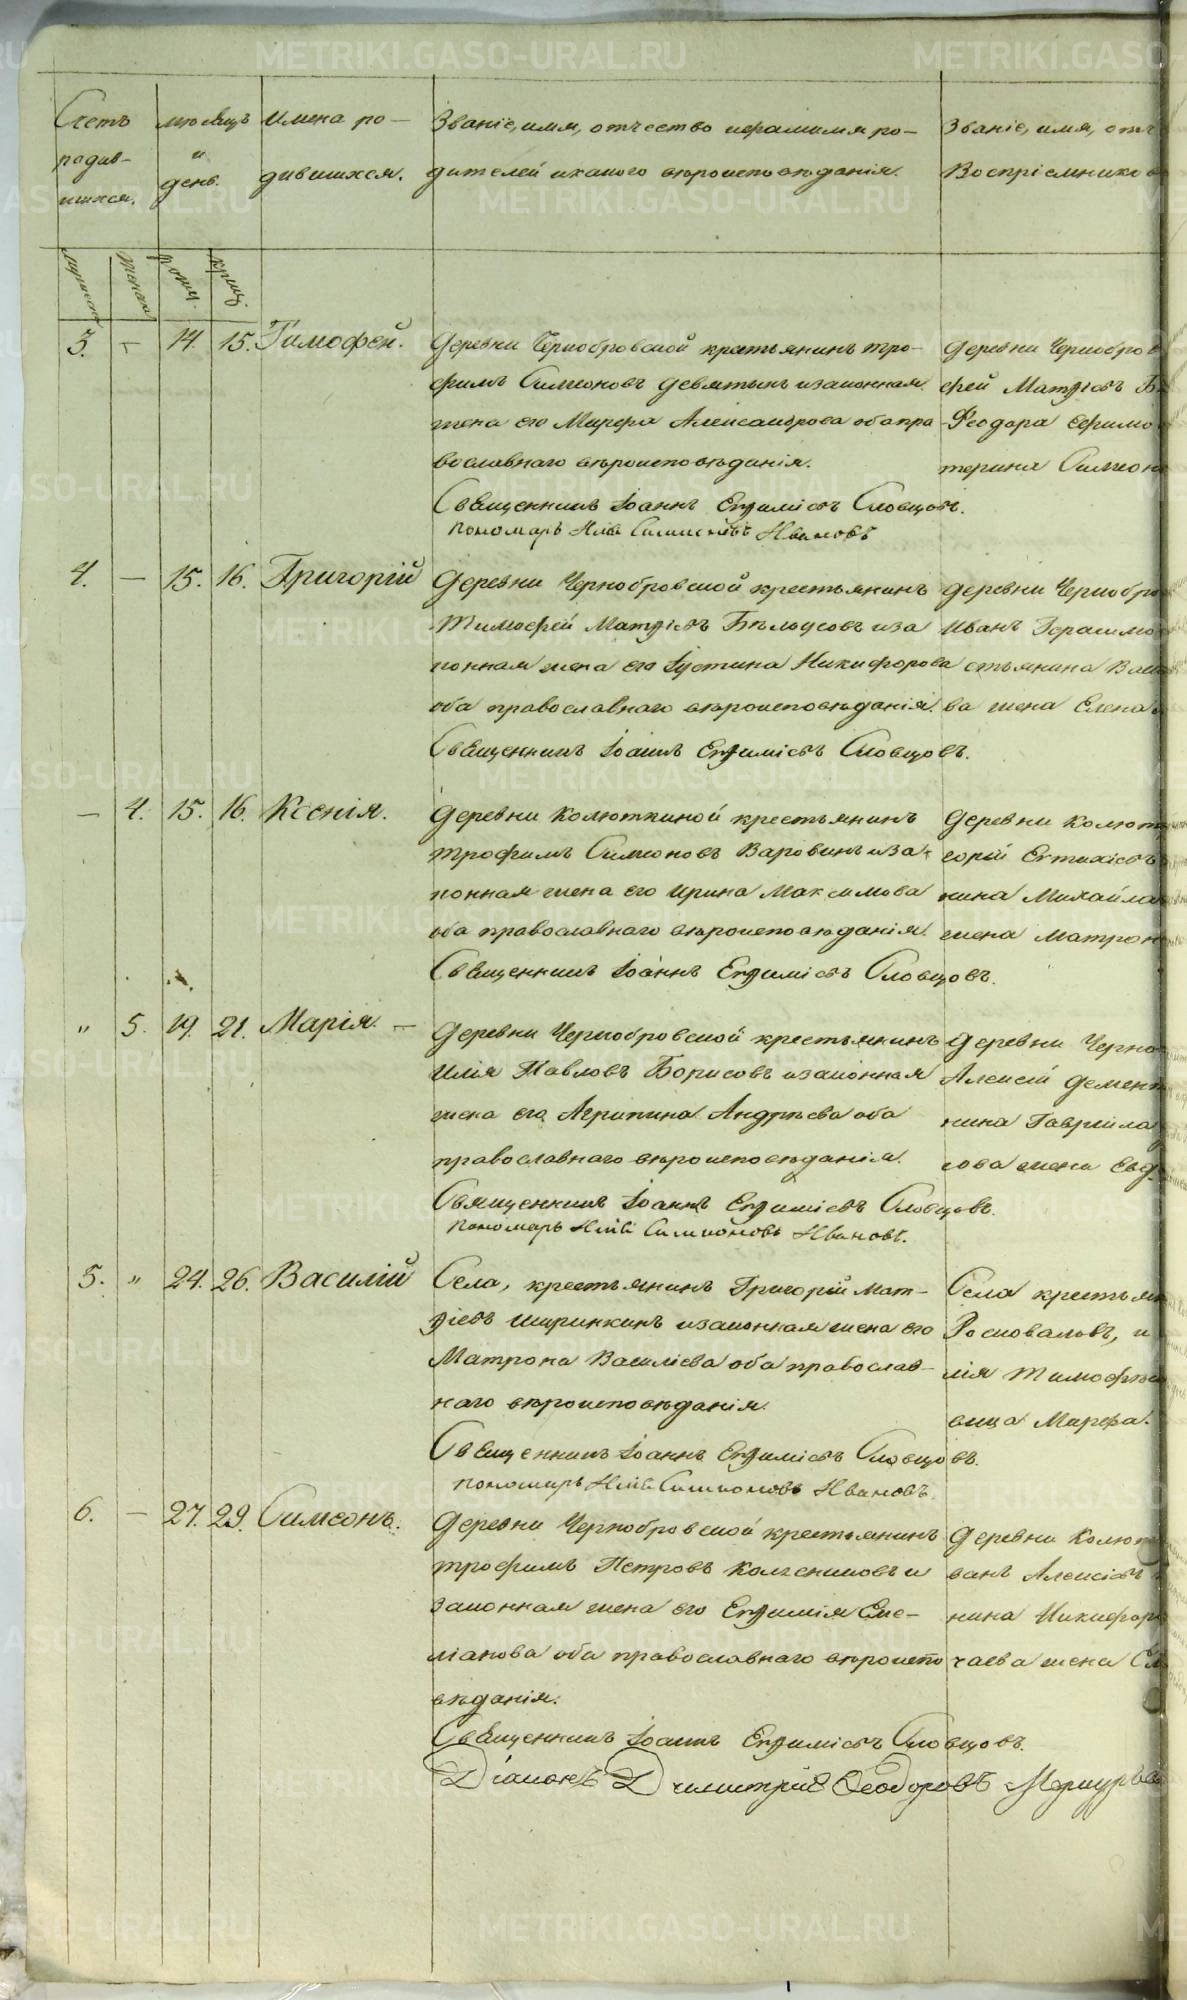 Счетъ родив-шихся.
мѣсяцъ и день.
Имена ро-
дившихся.
Званіе, имя, отчество и фамилия ро-
дителей и какого вѣроисповѣданія.
Званіе, имя, отч
Воспріемников
мужеск
женск
рожд.
крещ.
3. — 14. 15. Тимофей.
деревни Чернобровской крестьянинъ Тро-
фимъ Симеоновъ Девятыхъ и законная
жена его Марфа Александрова оба пра
вославнаго вѣроисповѣданія.
Священникъ Іоаннъ Евфиміевъ Словцовъ.
пономарь Илія Симионовъ Ивановъ
деревни Чернобров
фей Матфіевъ Б
Феодора Ефимо
терина Симеон
4. — 15. 16. Григорій
деревни Чернобровской крестьянинъ
Тимофей Матфіевъ Бѣлоусовъ и за
конная жена его Іустина Никифорова
оба православнаго вѣроисповѣданія.
Священникъ Іоаннъ Евфиміевъ Словцовъ.
деревни Чернобро
Иванъ Герасимо
стьянина Васи
ва жена Елена
— 4. 15. 16. Ксенія.
деревни Колюткиной крестьянинъ
Трофимъ Симеоновъ Варовинъ и за-
конная жена его Ирина Максимова
оба православнаго вѣроисповѣданія.
Священникъ Іоаннъ Евфиміевъ Словцовъ.
деревни Колют
горій Евтихіевъ
нина Михайла
жена Матрон
" 5. 19. 21. Марія. —
деревни Чернобровской крестьянинъ
Илія Павловъ Борисовъ и законная
жена его Агрипина Андрѣева оба
православнаго вѣроисповѣданія.
Священникъ Іоаннъ Евфиміевъ Словцовъ.
пономарь Илія Симионовъ Ивановъ.
деревни Черно
Алексій Демент
нина Гавріила
това жена Евд
5. " 24. 26. Василій
Села, крестьянинъ Григорій Мат-
фіевъ Ширинкинъ и законная жена его
Матрона Василіева оба православ-
наго вѣроисповѣданія.
Священникъ Іоаннъ Евфиміевъ Словцовъ.
пономарь Илія Симионовъ Ивановъ.
Села крестьян
Росковаловъ, и
лія Тимофѣев
вица Марфа.
6. — 27. 29. Симеонъ.
деревни Чернобровской крестьянинъ
Трофимъ Петровъ Колесниковъ и
законная жена его Евфимія Еме-
ліанова оба православнаго вѣроиспо
вѣданія.
Священникъ Іоаннъ Евфиміевъ Словцовъ.
Діаконъ Димитрій Ѳеодоровъ Меркурьев
деревни Колют
ванъ Алексіевъ
нина Никифор
чаева жена Ел
METRIKI.GASO-URAL.RU